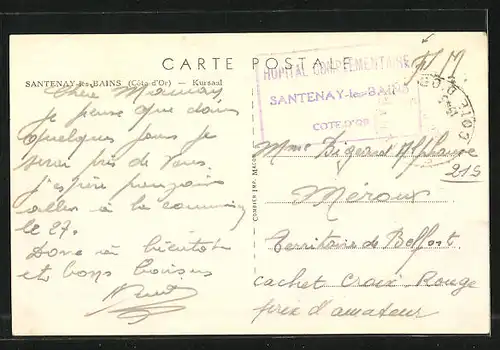 CARTE POSTALE
F.M.
SANTENAY-les-BAINS (Côte d'Or) — Kursaal
HOPITAL COMPLEMENTAIRE
SANTENAY-les-BAINS
COTE D'OR
COTE D'OR
Chère Maman
je pense que dans
quelques jours je
serai près de Vous.
j'espère pouvoir
aller à la
le 27.
Donc à bientôt
et bons baisers
Mme Alphonse
215
Méroux
Territoire de Belfort
cachet Croix Rouge
prix d'amateur
COMBIER IMP. MACON